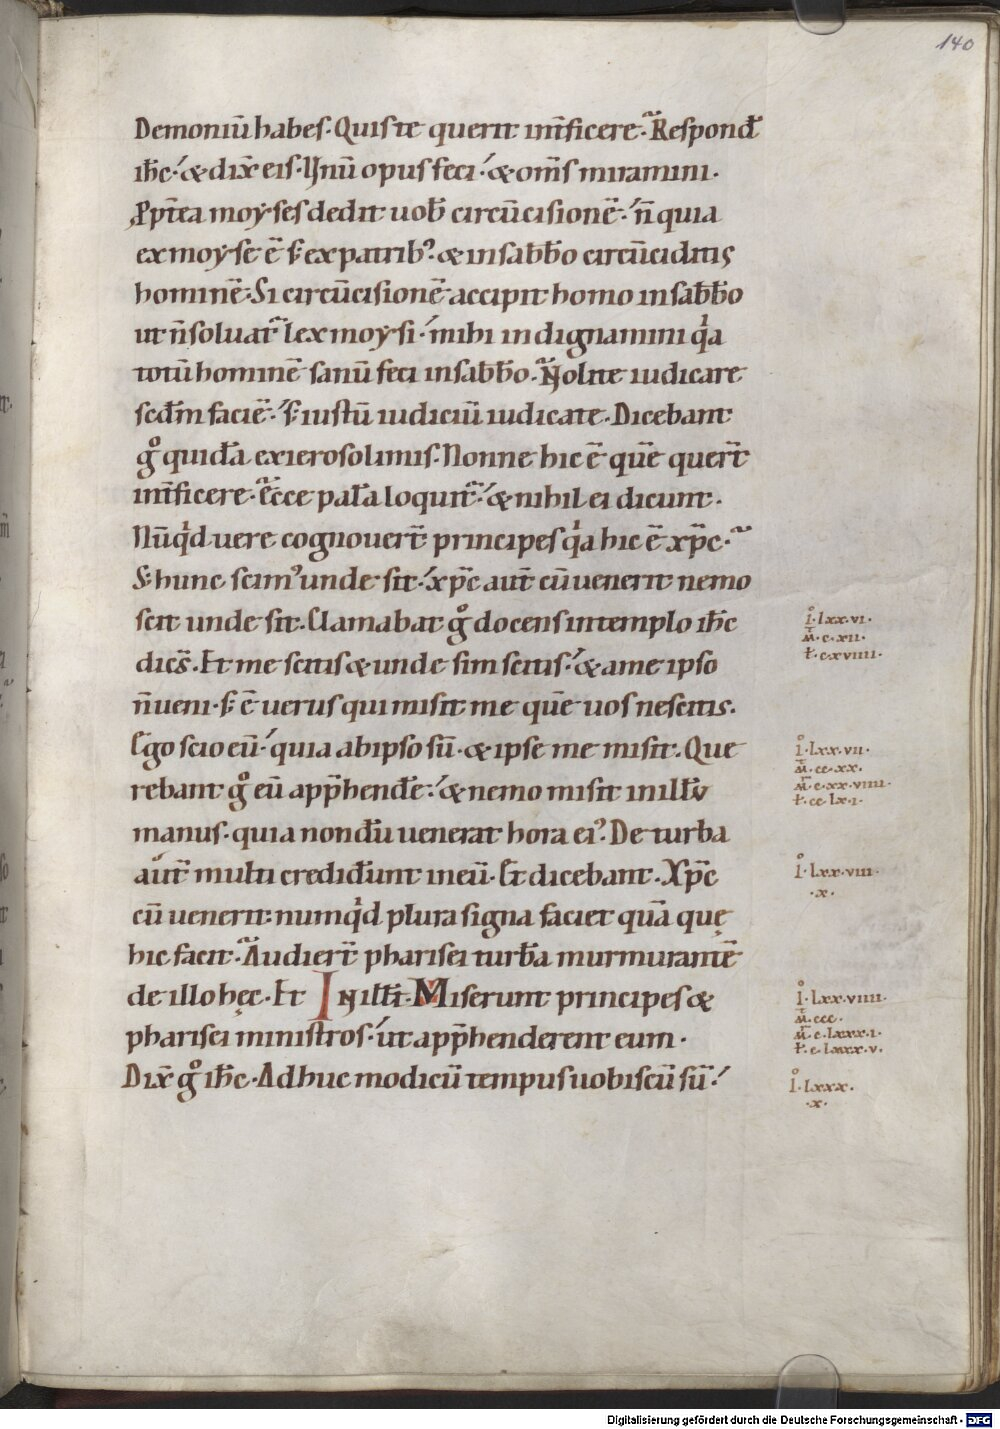 140
Demoniū habes. Quis te querit int̄ficere. Respond̄
ih̄c. & dix̄ eis. Unū opus feci. & om̄s miramini.
Ꝓpt̄ea moyses dedit uob̄ circūcisionē. n̄ quia
ex moyse ē s; ex patrib; & in sab̄b̄o circūciditis
hominē. Si circūcisionē accipit homo in sab̄b̄o
ut n̄ soluat̄ lex moysi. mihi indignamini qͥa
totū hominē sanū feci in sab̄b̄o. Nolite iudicare
scd̄m faciē. s; iustū iudiciū iudicate. Dicebant
gͦ quida̅ ex ierosolimis. Nonne hic ē quē quer̄t
int̄ficere. Ecce pala̅ loquit̄. & nihil ei dicunt.
Nūqͥd uere cognouer̄t principes qͥa hic ē xp̄c.
S; hunc scimꝰ unde sit. xp̄c aut̄ cū uenerit nemo
scit unde sit. Clamabat gͦ docens in templo ih̄c
dics̄. Et me scitis & unde sim scitis. & a me ipso
n̄ ueni. s; ē uerus qui misit me quē uos nescitis.
Ego scio eū. quia ab ipso sū. & ipse me misit. Que
rebant gͦ eū app̄hendēͬ. & nemo misit in illū
manus. quia nondū uenerat hora eiꝰ. De turba
aut̄ multi credid̄unt in eū. Et dicebant. Xp̄c
cū uenerit. numqͥd plura signa faciet quā quę
hic facit. Audier̄t pharisei turbā murmurantē
de illo hęc. Et In ill̄ t̄. Miserunt principes &
pharisei ministros. ut app̄henderent eum.
Dix̄ gͦ ih̄c. Adhuc modicū tempus uobiscū sū.
I. lxx.vi.
M̄. c.xii.
L. cxviiii.
I. lxx.vii.
M̄. cc.xx.
M̄. c.xx.viiii.
L. cc.lx.i.
I. lxx.viii.
.x.
I. lxx.viiii.
M̄. ccc.
M̄. c.lxxx.i.
L. c.lxxx.v.
I. lxxx.
.x.
Digitalisierung gefördert durch die Deutsche Forschungsgemeinschaft - DFG